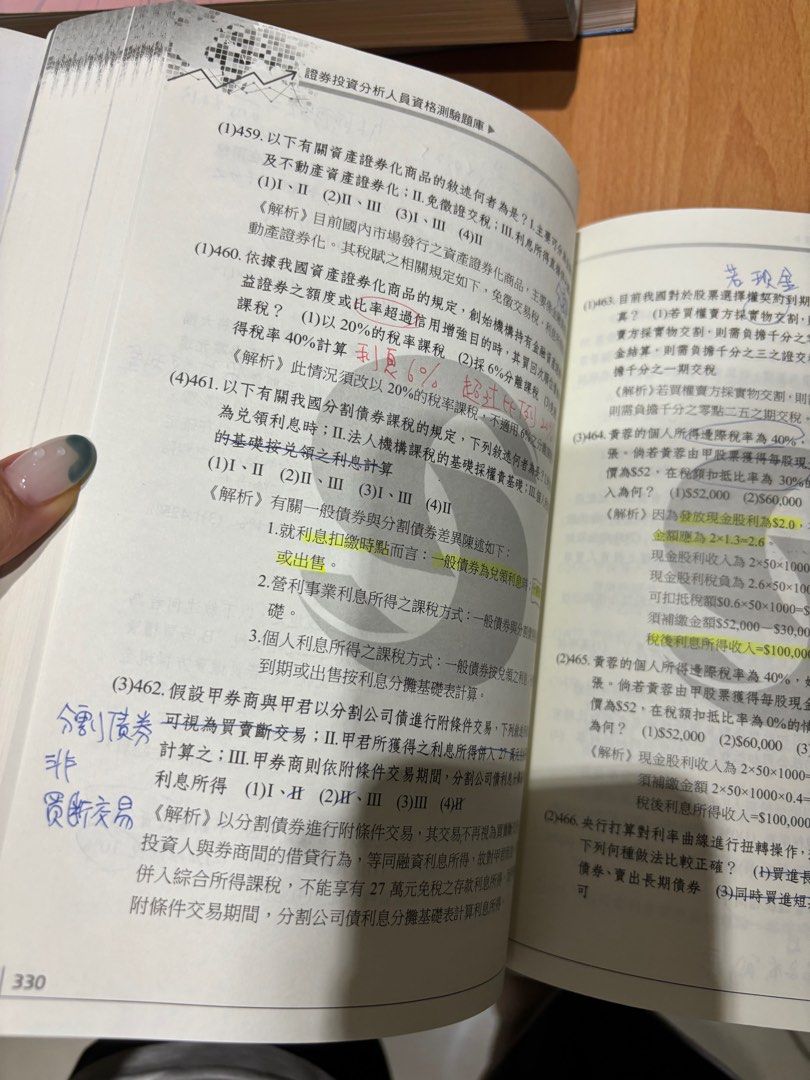 證券投資分析人員資格測驗題庫▶
(1)459. 以下有關資產證券化商品的敘述何者為是？I.主要可分為
及不動產資產證券化；II.免徵證交稅；III.利息所得
(1)I、II (2)II、III (3)I、III (4)II
《解析》目前國內市場發行之資產證券化商品，主要
動產證券化。其稅賦之相關規定如下，免徵交易稅，利息
(1)460. 依據我國資產證券化商品的規定，創始機構持有
益證券之額度或比率超過信用增強目的時，其
課稅？ (1)以20%的稅率課稅 (2)採6%分離課稅
得稅率40%計算
利息6%
《解析》此情況須改以20%的稅率課稅，不適用6%
(4)461. 以下有關我國分割債券課稅的規定，下列敘述何者為是？
為兌領利息時；II.法人機構課稅的基礎採權責基礎；III.個人
的基礎按兌領之利息計算
(1)I、II (2)II、III (3)I、III (4)II
《解析》有關一般債券與分割債券差異陳述如下：
1.就利息扣繳時點而言：一般債券為兌領利息時；
或出售。
2.營利事業利息所得之課稅方式：一般債券與分割債券
礎。
3.個人利息所得之課稅方式：一般債券按兌領之利息，
到期或出售按利息分攤基礎表計算。
(3)462. 假設甲券商與甲君以分割公司債進行附條件交易，下列敘述
可視為買賣斷交易；II.甲君所獲得之利息所得併入27萬元
計算之；III.甲券商則依附條件交易期間，分割公司債利息
利息所得 (1)I、II (2)II、III (3)III (4)II
分割債券
非
買斷交易
《解析》以分割債券進行附條件交易，其交易不再視為買賣斷
投資人與券商間的借貸行為，等同融資利息所得，故對甲君
併入綜合所得課稅，不能享有27萬元免稅之存款利息所得
附條件交易期間，分割公司債利息分攤基礎表計算利息所得
330
若現金
(1)463. 目前我國對於股票選擇權契約到期
真？ (1)若買權賣方採實物交割，
賣方採實物交割，則需負擔千分之
金結算，則需負擔千分之三之證交
擔千分之一期交稅
《解析》若買權賣方採實物交割，則
則需負擔千分之零點二五之期交稅。
(3)464. 黃蓉的個人所得邊際稅率為40%，
張。倘若黃蓉由甲股票獲得每股現
價為$52，在稅額扣抵比率為30%的
入為何？ (1)$52,000 (2)$60,000
《解析》因為發放現金股利為$2.0，
金額應為2×1.3=2.6。
現金股利收入為2×50×1000
現金股利稅負為2.6×50×100
可扣抵稅額$0.6×50×1000=$
須補繳金額$52,000—$30,00
稅後利息所得收入=$100,000
(2)465. 黃蓉的個人所得邊際稅率為40%，
張。倘若黃蓉由甲股票獲得每股現金
價為$52，在稅額扣抵比率為0%的情
為何？ (1)$52,000 (2)$60,000 (3
《解析》現金股利收入為2×50×1000=
須補繳金額2×50×1000×0.4=
稅後利息所得收入=$100,000
(2)466. 央行打算對利率曲線進行扭轉操作，
下列何種做法比較正確？ (1)買進長
債券、賣出長期債券 (3)同時買進短
可